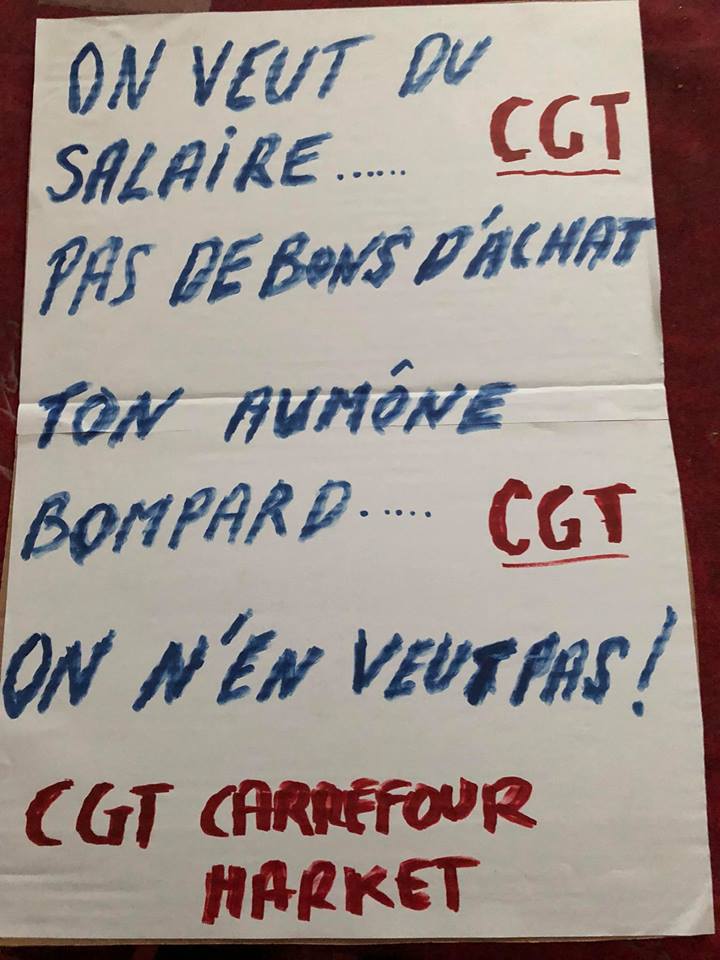 ON VEUT DU
CGT
SALAIRE......
PAS DE BONS D'ACHAT
TON AUMÔNE
BOMPARD.....
CGT
ON N'EN VEUT PAS!
CGT CARREFOUR
MARKET